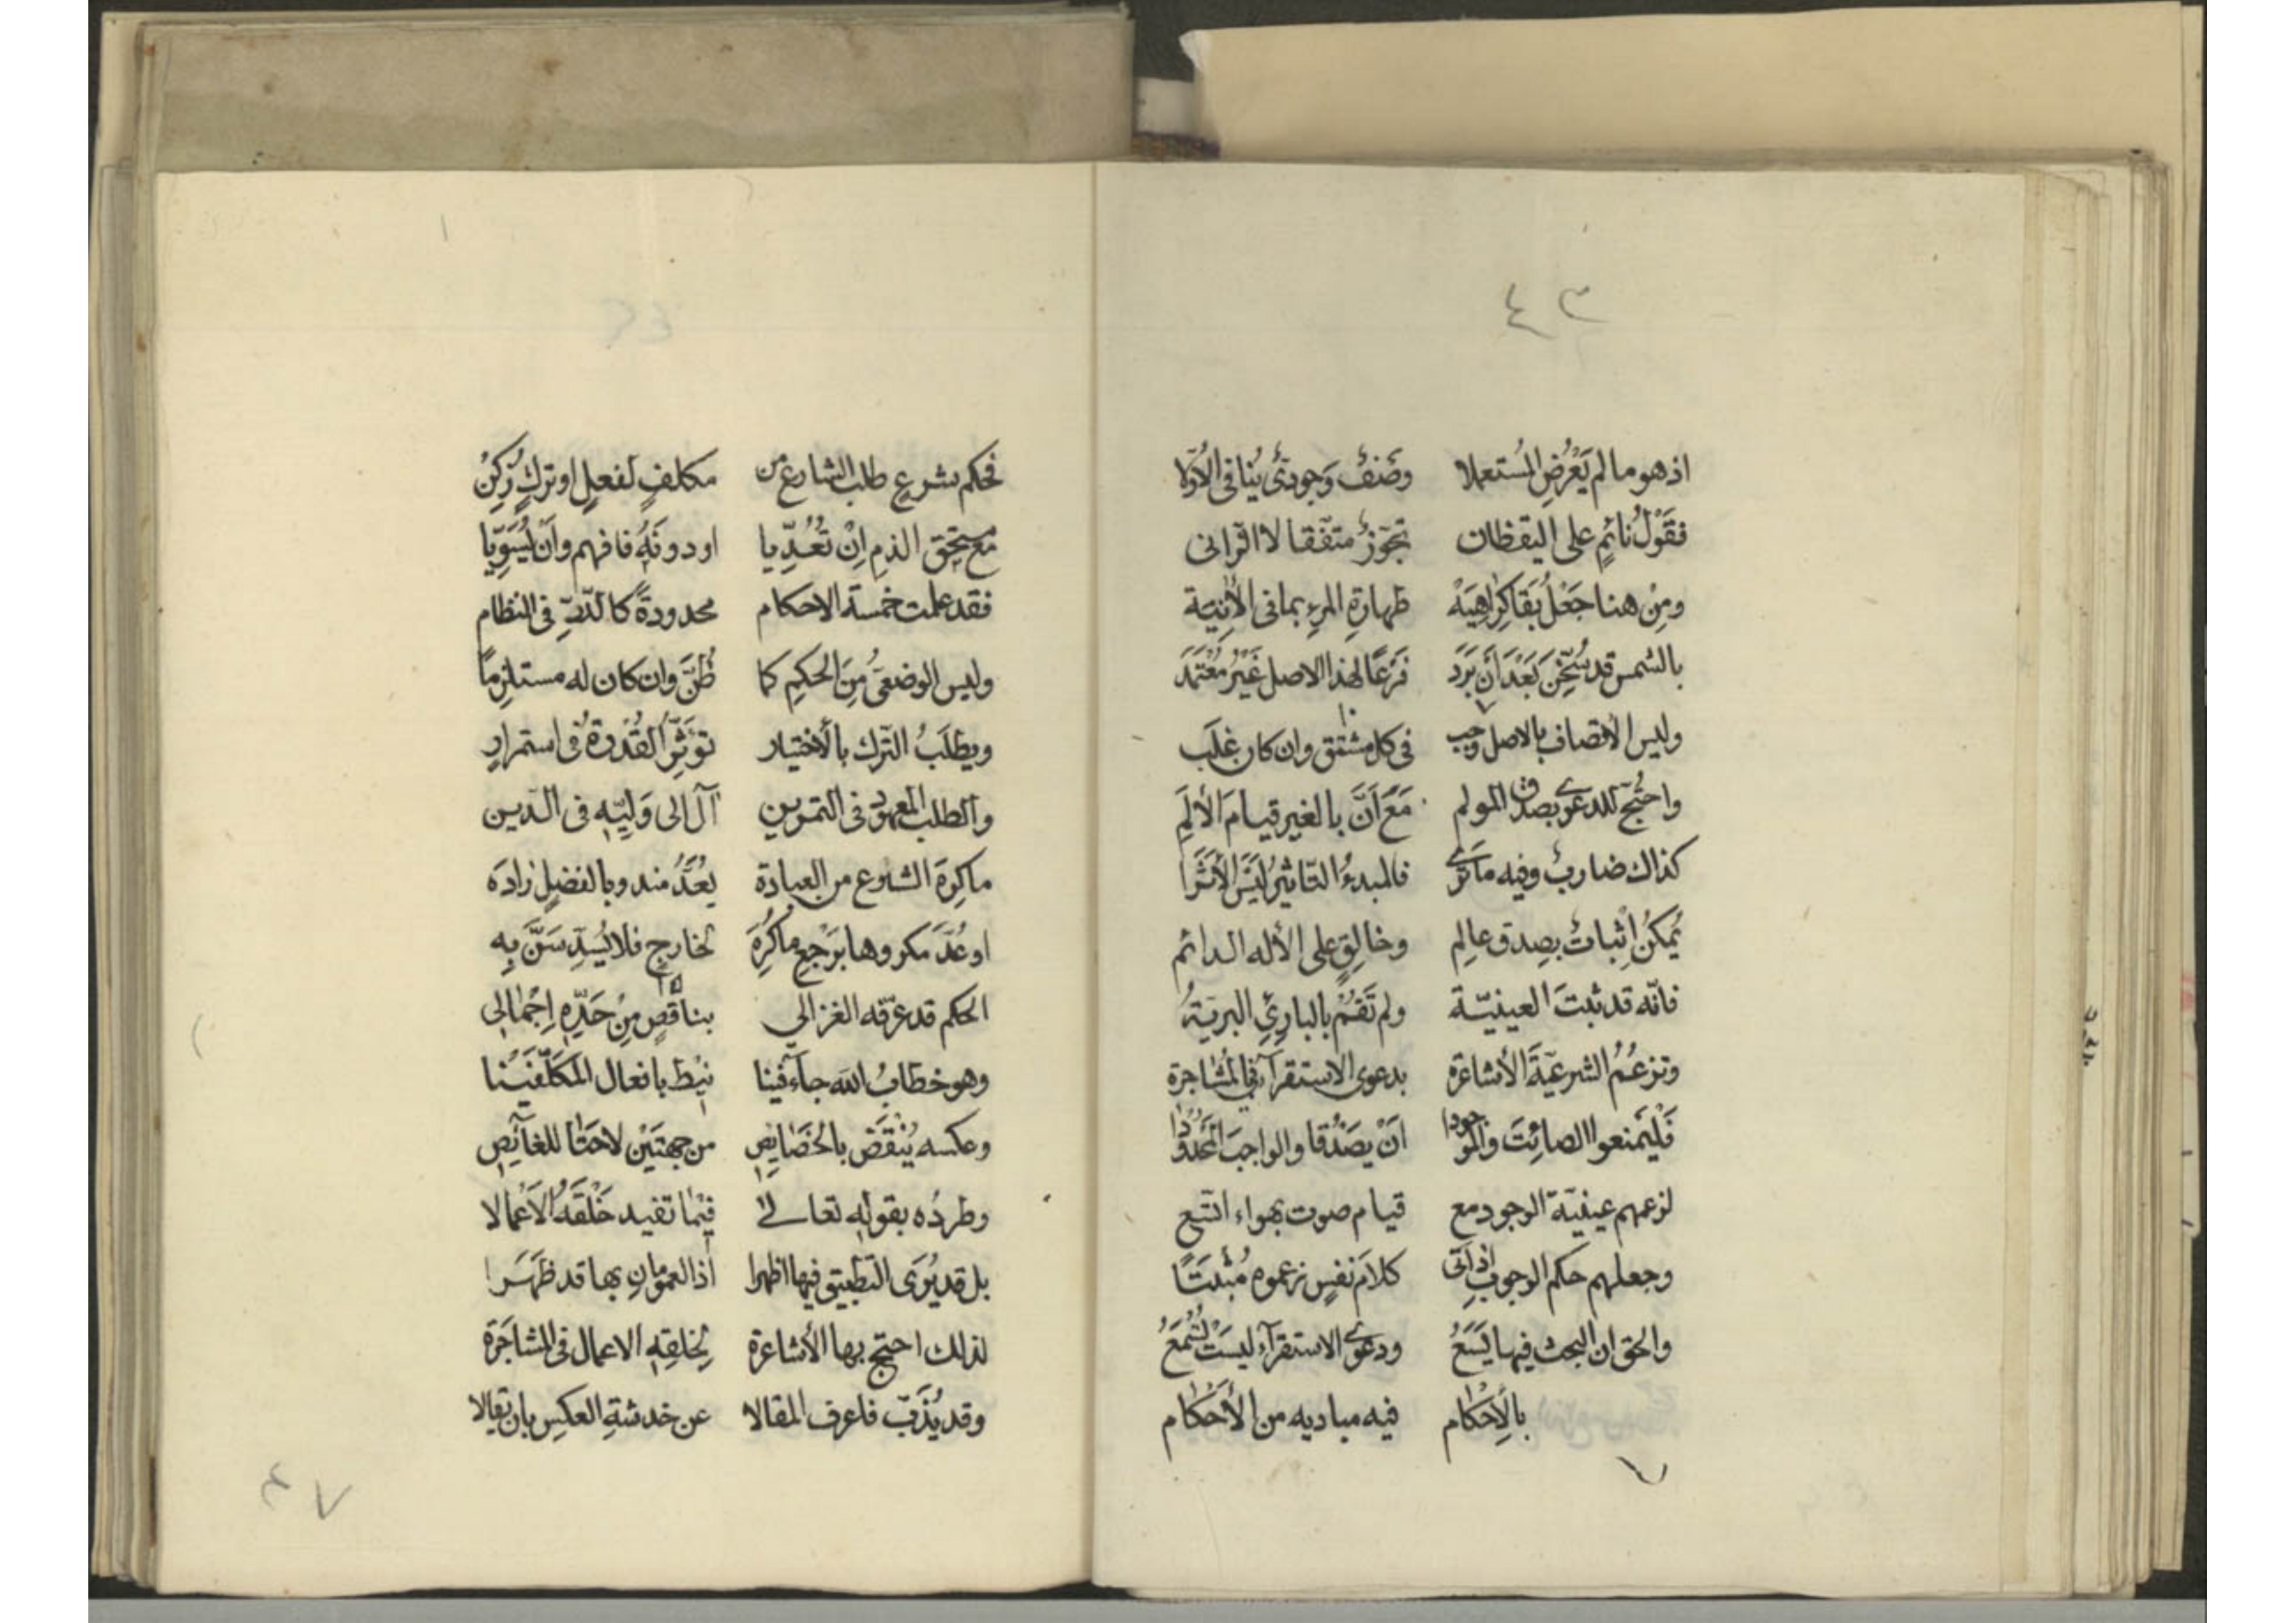 ٤٣
اذ هو ما لم يَعْرُضِ المُستعملا وضَنفٌ وَجوديٌ يُنافى الأوّلا
فقَوْلُ نائمٍ على اليقظان تجوّزٌ متّفقا لا اقرانى
ومِنْ هنا جَعْلُ بَقَا كِرٰاهِيَهْ طهارةِ المرءِ بما فى الأنية
بالشمس قد سُخّنَ بَعْدَ أن بَرَدَ فرْعًا لهذا الاصل غَيْرُ مُعْتَمَدَ
وليس الاتصاف بالاصل وجب فى كل مشتق وان كان غلَب
واحتُجّ للدعوى بصدق المولم مَعَ اَنَّ بالغير قيامَ الألَمِ
كذاك ضاربٌ وفيه ما تَرَى فالمبدءُ التاثيرُ ليسَ الأثَرَا
يُمكنُ إثباتٌ بصِدق عالِم وخالِقٍ على الأله الدائم
فانّه قد ثبتَ العينيّة ولم تَقُمْ بالبارِئِ البريّةُ
وتزعُمُ الشرعيّةَ الأشاعرة بدعوى الاستقرآء فى المُشاجرة
فَلْيَمنعوا الصائِتَ والموجودا اَنْ يصَدُقا والواجبَ المحَدُودا
لزعمهم عينيّة الوجود مع قيام صوت بهواء اتّبع
وجعلهم حكم الوجوب اذ اتى كلامَ نفسٍ زعموه مُثْبَتًا
والحق ان البحث فيها يَسَعُ ودعوى الاستقرآء ليسَتْ تُسْمَعُ
بالإحْكام فيه مباديه من الأحْكام
٧
فحكم شرع طلب الشارع من مكلفٍ لفعلٍ او تركٍ زُكِنْ
مع مستحق الذم اِنْ تُعُدِّيا او دونَهُ فافهم واَنْ يُسَوِّيا
فقد علمت خمسة الاحكام محدودةً كالدّرِّ فى النظام
وليس الوضعىُّ مِنَ الحكمِ كما ظُنَّ وان كان له مستلزِمًا
ويطلَبُ الترك بالأختيار تؤثّرُ القُدْرةُ فى استمرارِ
والطلب المعهود فى التمرين آل الى وَليّهِ فى الدين
ما كرِهَ الشارع من العبادة يُعَدُّ مندوبا لفضلٍ زادَه
او عُدَّ مكروها بَرَجْعِ ما كُرِهَ لخارجٍ فلا يُسَدّ سَنَّ بِه
الحكم قد عرّفه الغزالي بناقصٍ مِنْ حَدِّهِ اِجْمٰالِى
وهو خطابُ الله جاءَ فينا نيْطَ بافعال المكَلَّفيَنا
وعكسه يُنْقَضُ بالخَصٰايصِ من جهتَيْن لاحَتٰا للغآئِصِ
وطردُه بقولِه تعالىٰ فيمٰا تفيد خَلْقَهُ الأعْمالا
بل قد يُرَى التطبيق فيها اظهرا اذا العمومانِ بها قد ظهَرا
لذلك احتج بها الأشاعرة لخلقِهِ الاعمال فى المشاجَرة
وقد يُذَبّ فاعرف المقالا عن خدشةِ العكسِ بان يقالا